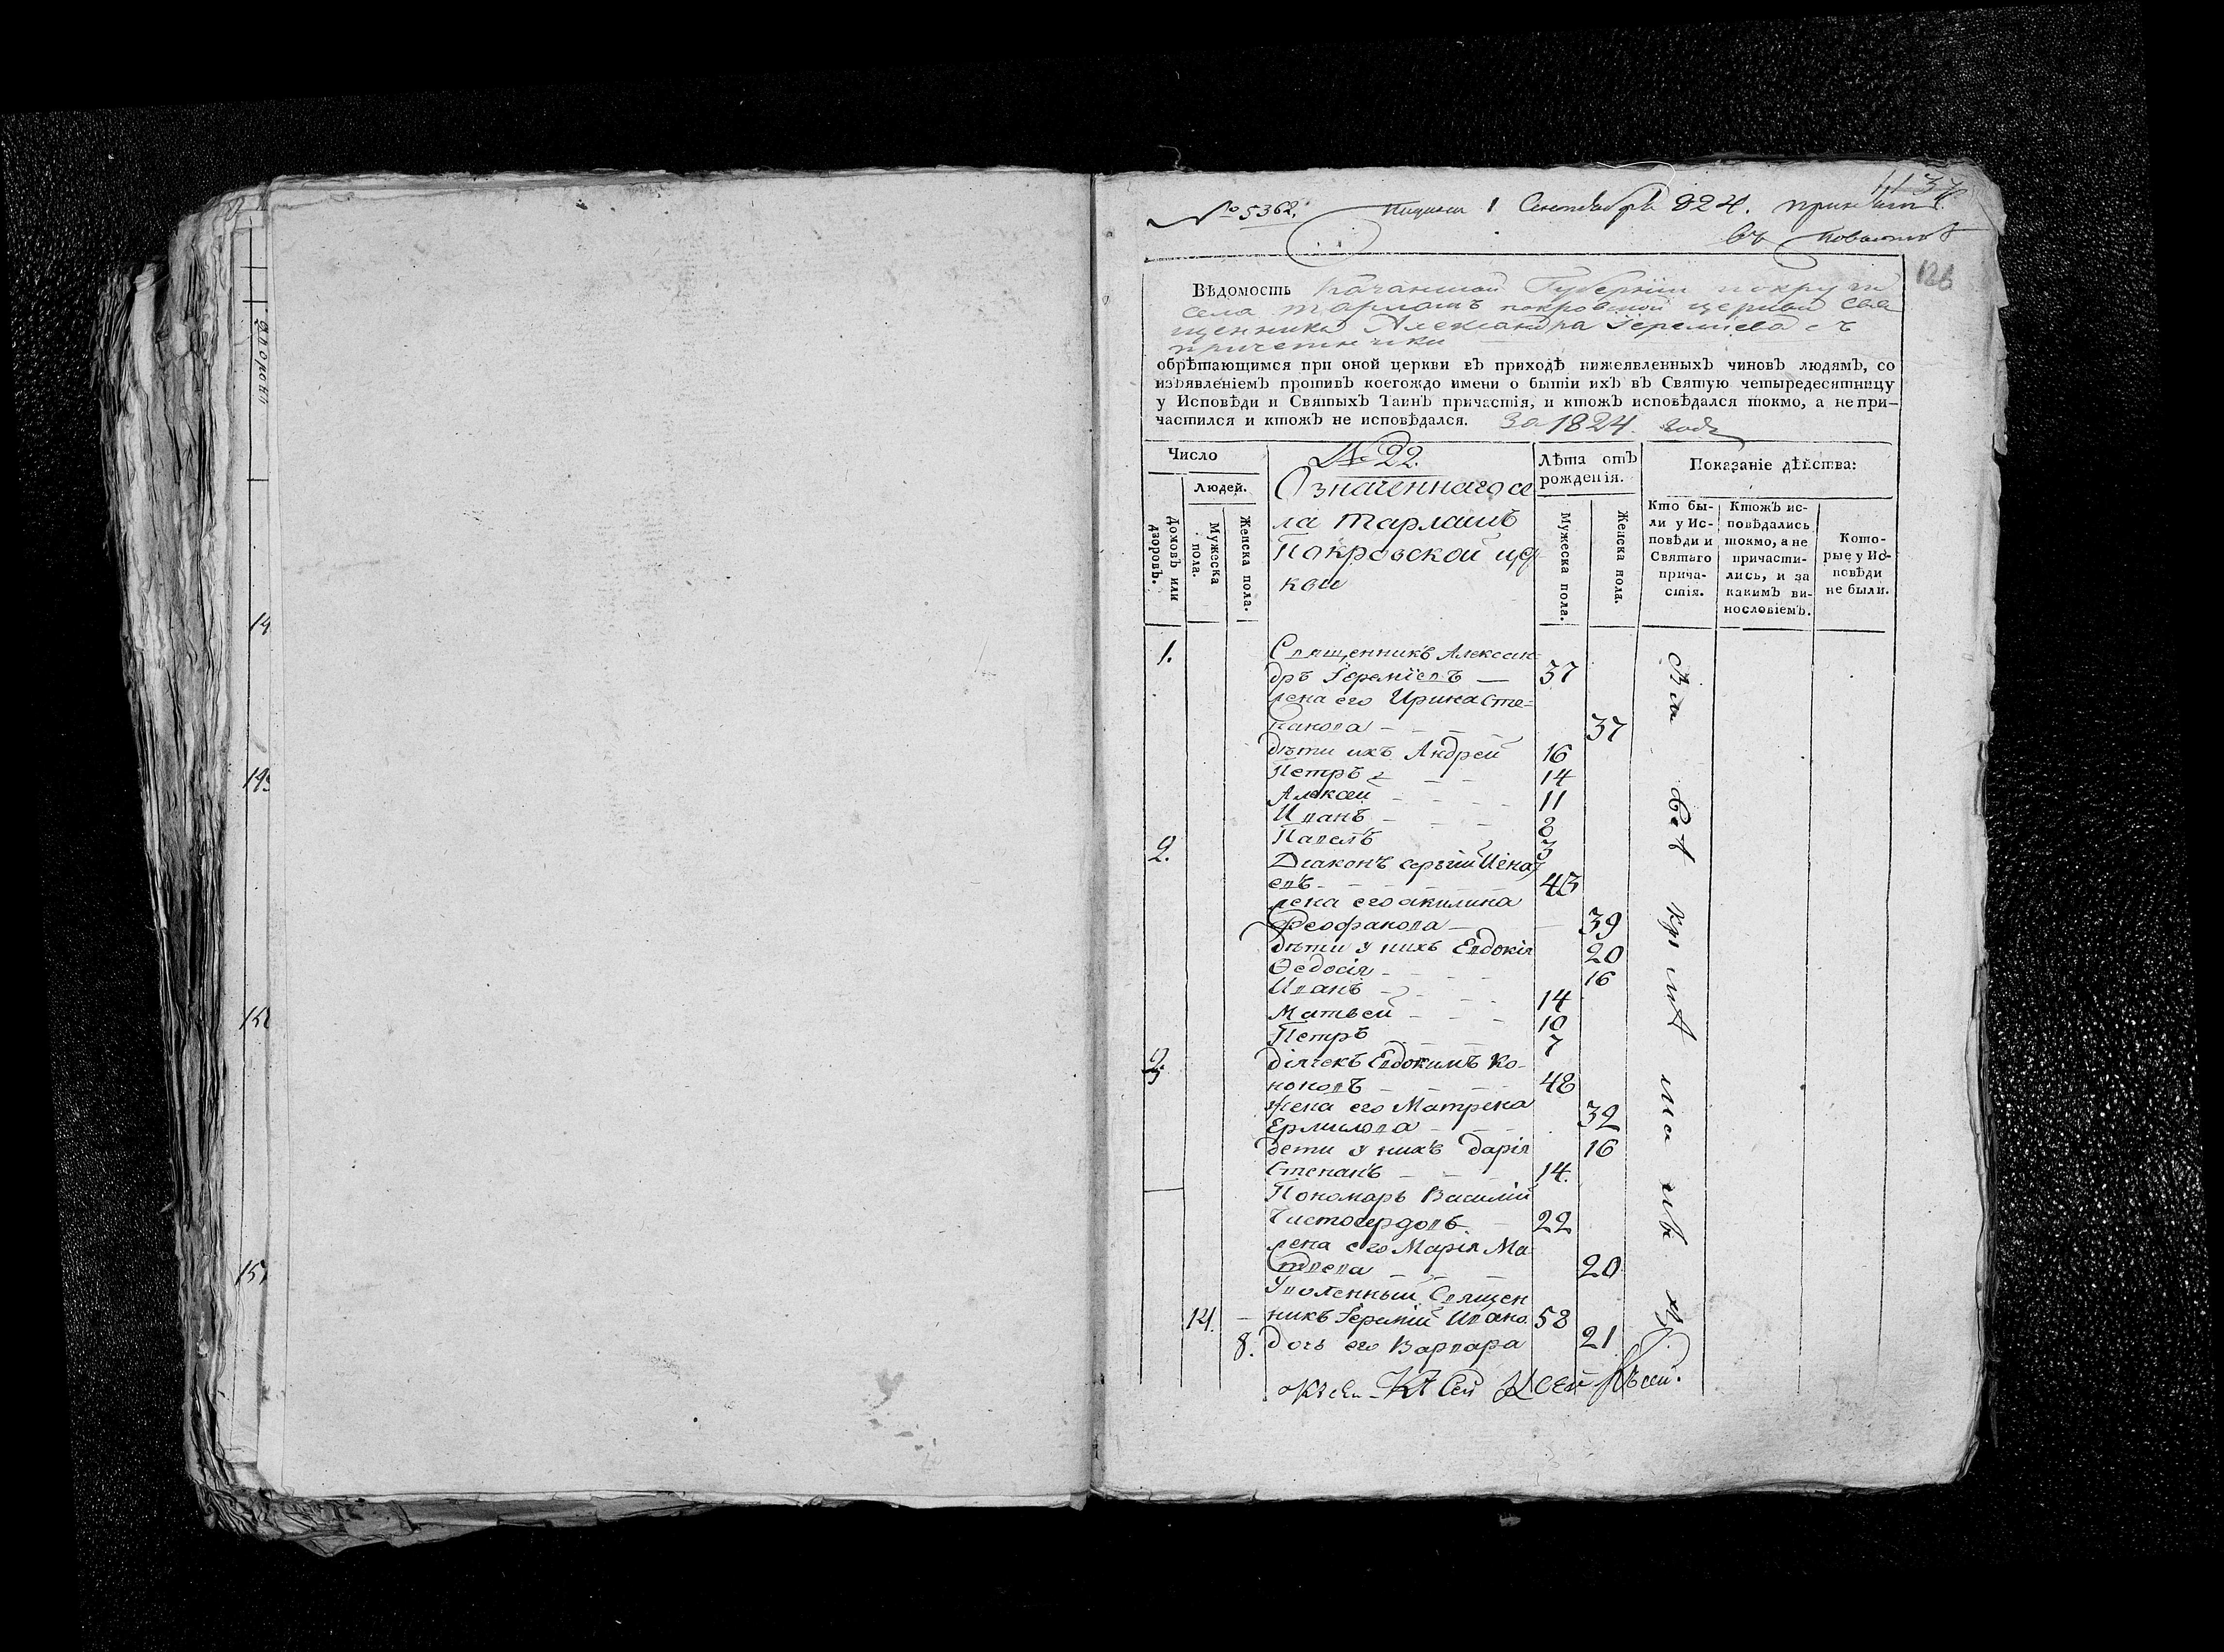 14
149
15
151
№ 5362. 1 Сентября 824.
въ
126
Вѣдомость Казанской Губерніи
села Тарлашъ покровской церкви свя
щенника Александра Іереміева съ
причетники
обрѣтающимся при оной церкви въ приходѣ нижеявленныхъ чиновъ людямъ, со
изъявленіемъ противъ коегождо имени о бытіи ихъ въ Святую четыредесятницу
у Исповѣди и Святыхъ Таинъ причастія, и ктожъ исповѣдался токмо, а не при-
частился и ктожъ не исповѣдался. За 1824. годъ
Число
Людей.
Домовъ или дворовъ.
Мужеска пола.
Женска пола.
№ 22.
Означеннаго се
ла Тарлашъ
Покровской цер
кви
Лѣта отъ рожденія.
Мужеска пола.
Женска пола.
Показаніе дѣйства:
Кто бы-
ли у Ис-
повѣди и
Святаго
прича-
стія.
Ктожъ ис-
повѣдались
токмо, а не
причасти-
лись, и за
какимъ ви-
нословіемъ.
Кото-
рые у Ис-
повѣди
не были.
1. Священникъ Алексан-
дръ Іереміевъ — 37
жена его Ирина Сте-
панова — 37
дѣти ихъ Андрей 16
Петръ 14
Алексей 11
Иванъ 8
Павелъ 3
2. Діаконъ сергій
евъ 43
жена его акилина
Феофанова — 39
дѣти у нихъ Евдокія 20
Ѳедосія 16
Иванъ 14
Матвей 10
Петръ 7
3. дьячекъ Евдокимъ Ко-
ноновъ 48
жена его Матрена
Ермилова 32
дети у нихъ дарія 16
Степанъ 14.
Пономарь Василій
Чистосердовъ 22
жена его Марія Ма-
твѣева 20
Уволенный Священ
14. никъ Іеремій Ивано 58
8. дочь его Варвара 21